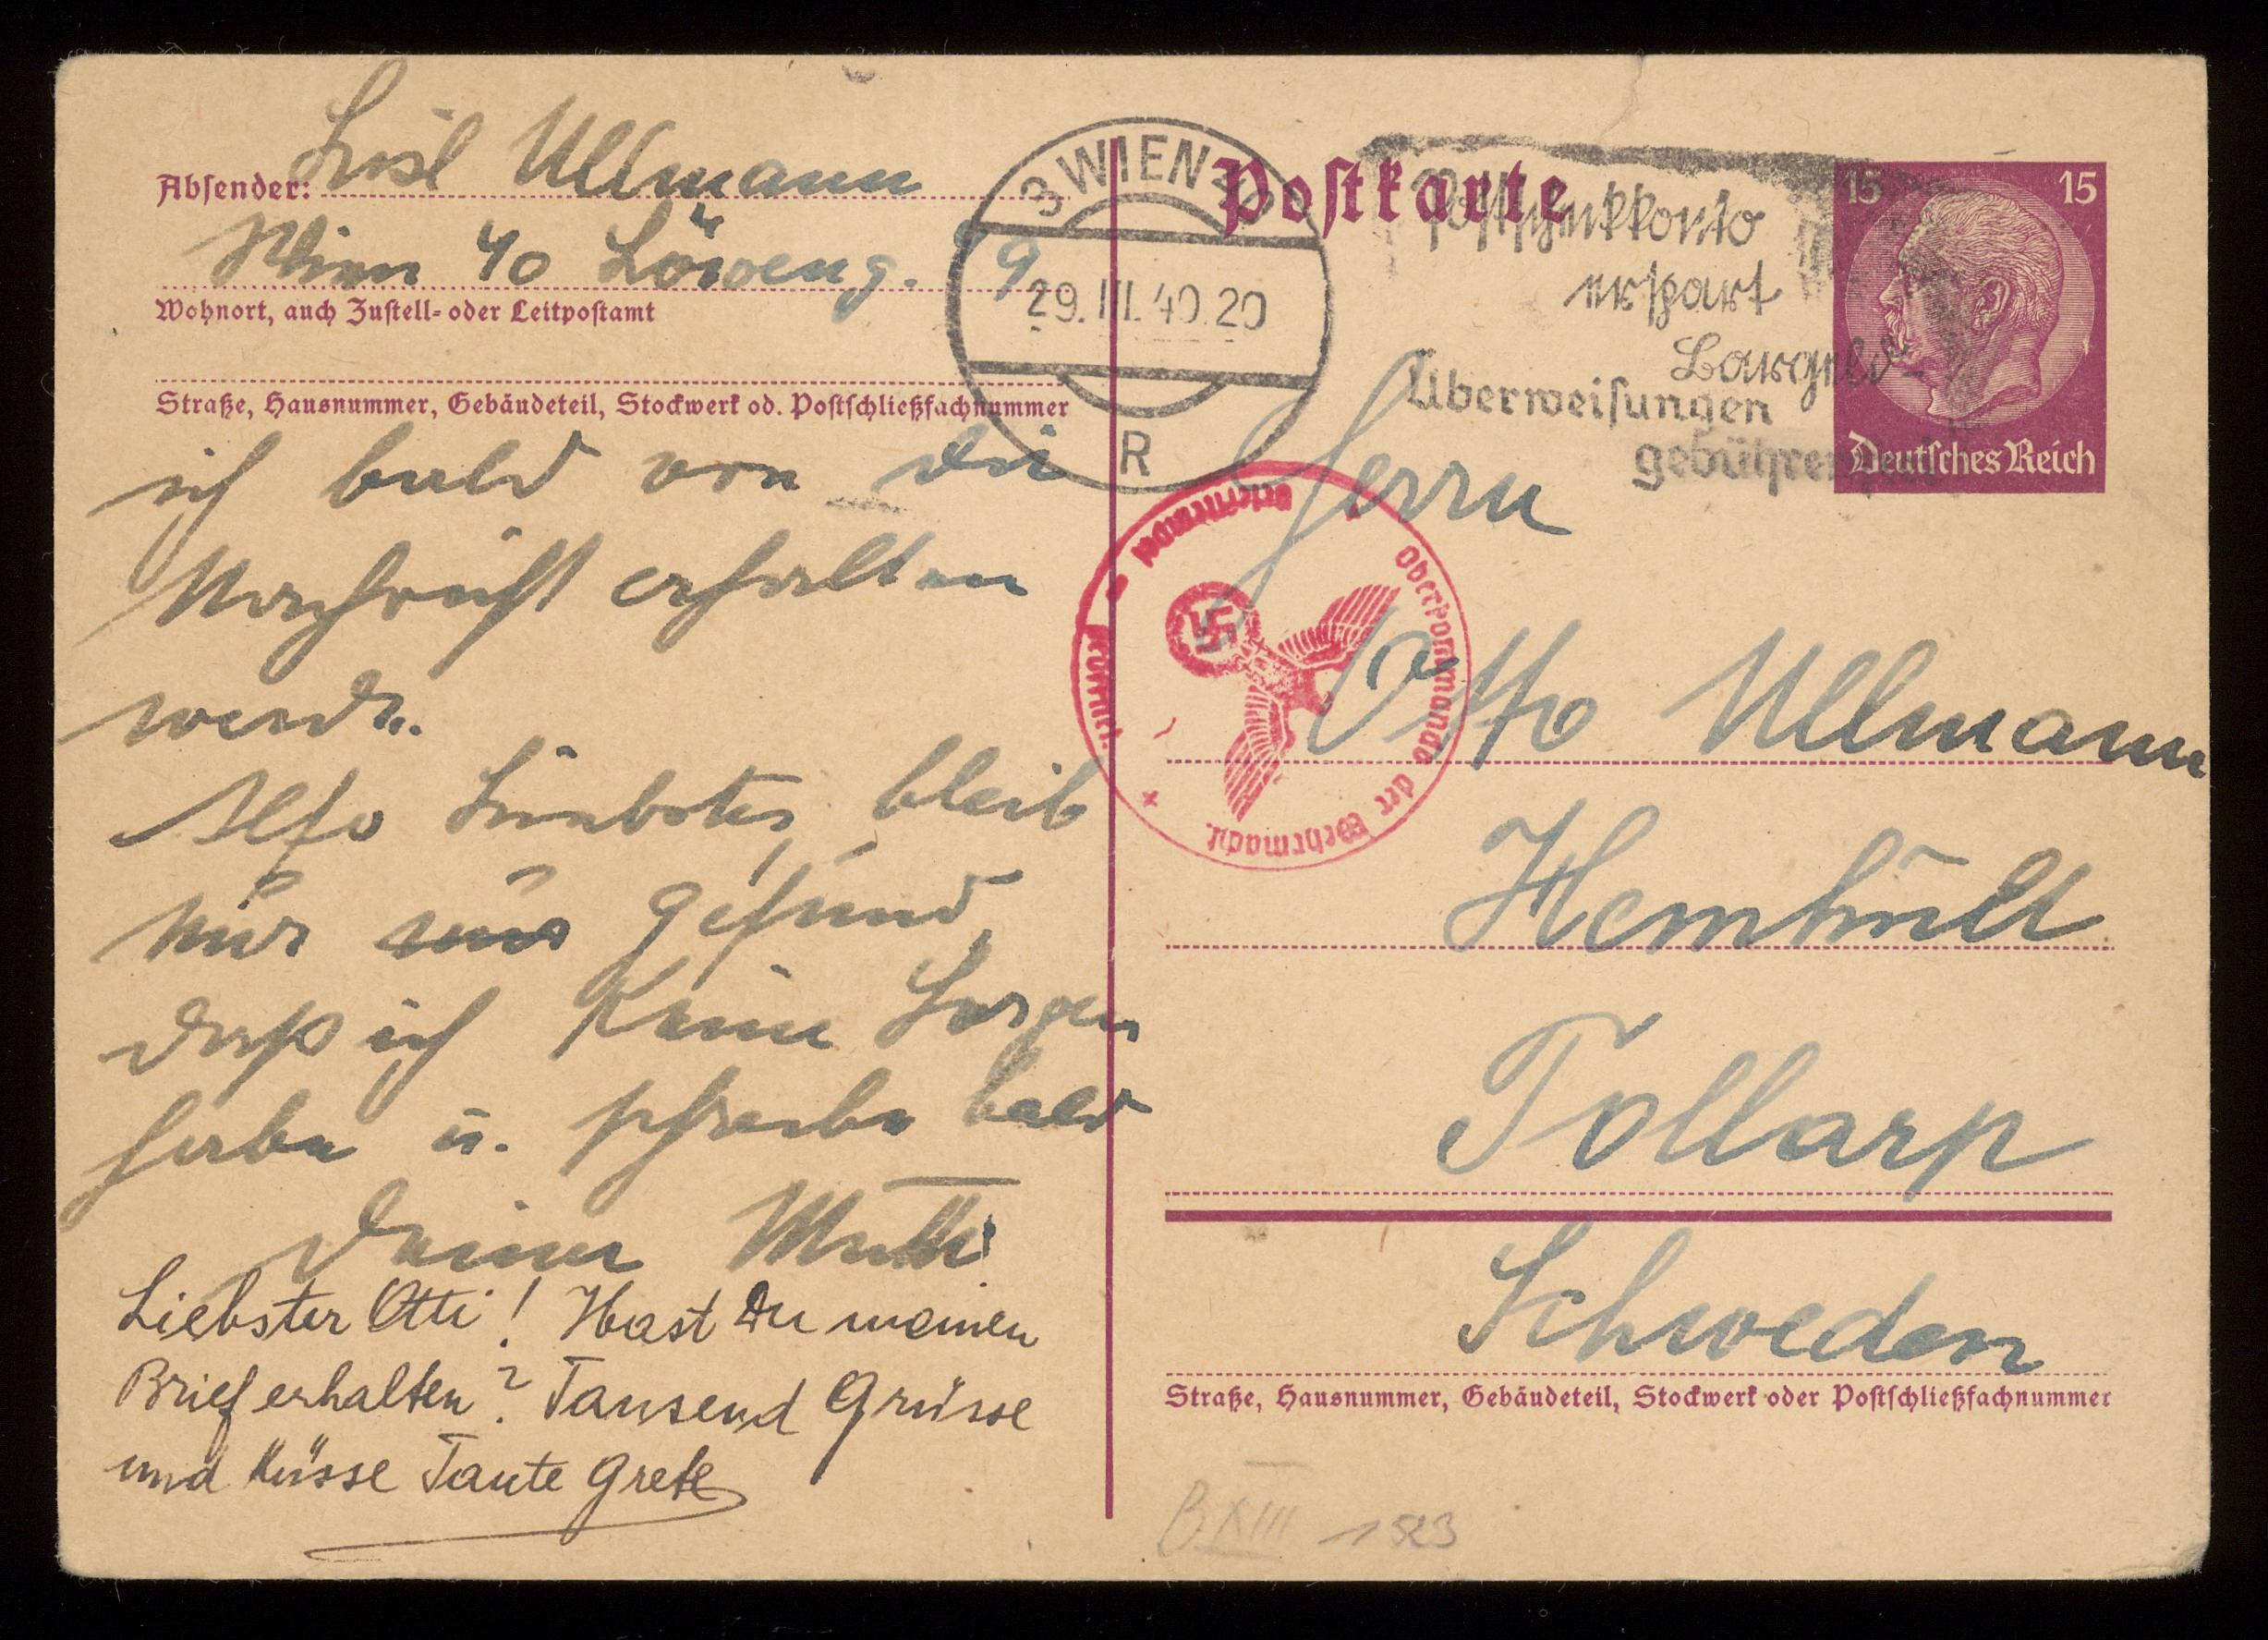 Absender: Lisl Ullmann
Wien 40 Löweng. 9
Wohnort, auch Zustell- oder Leitpostamt
Straße, Hausnummer, Gebäudeteil, Stockwerk od. Postschließfachnummer
ich bald von dir
Nachricht erhalten
werde.
Also Liebster, bleib
mir nur gesund,
daß ich keine Sorgen
habe u. schreibe bald
Deiner Mutti
Liebster Otti! Hast Du meinen
Brief erhalten? Tausend Grüsse
und Küsse Tante Grete
3 WIEN
29.III.40.20
R
Postkarte
Postscheckkonto
erspart
Bargeld-
Überweisungen
15 15
Deutsches Reich
Oberkommando der Wehrmacht
Herrn
Otto Ullmann
Hemhult
Tollarp
Schweden
Straße, Hausnummer, Gebäudeteil, Stockwerk oder Postschließfachnummer
B XIII 1523